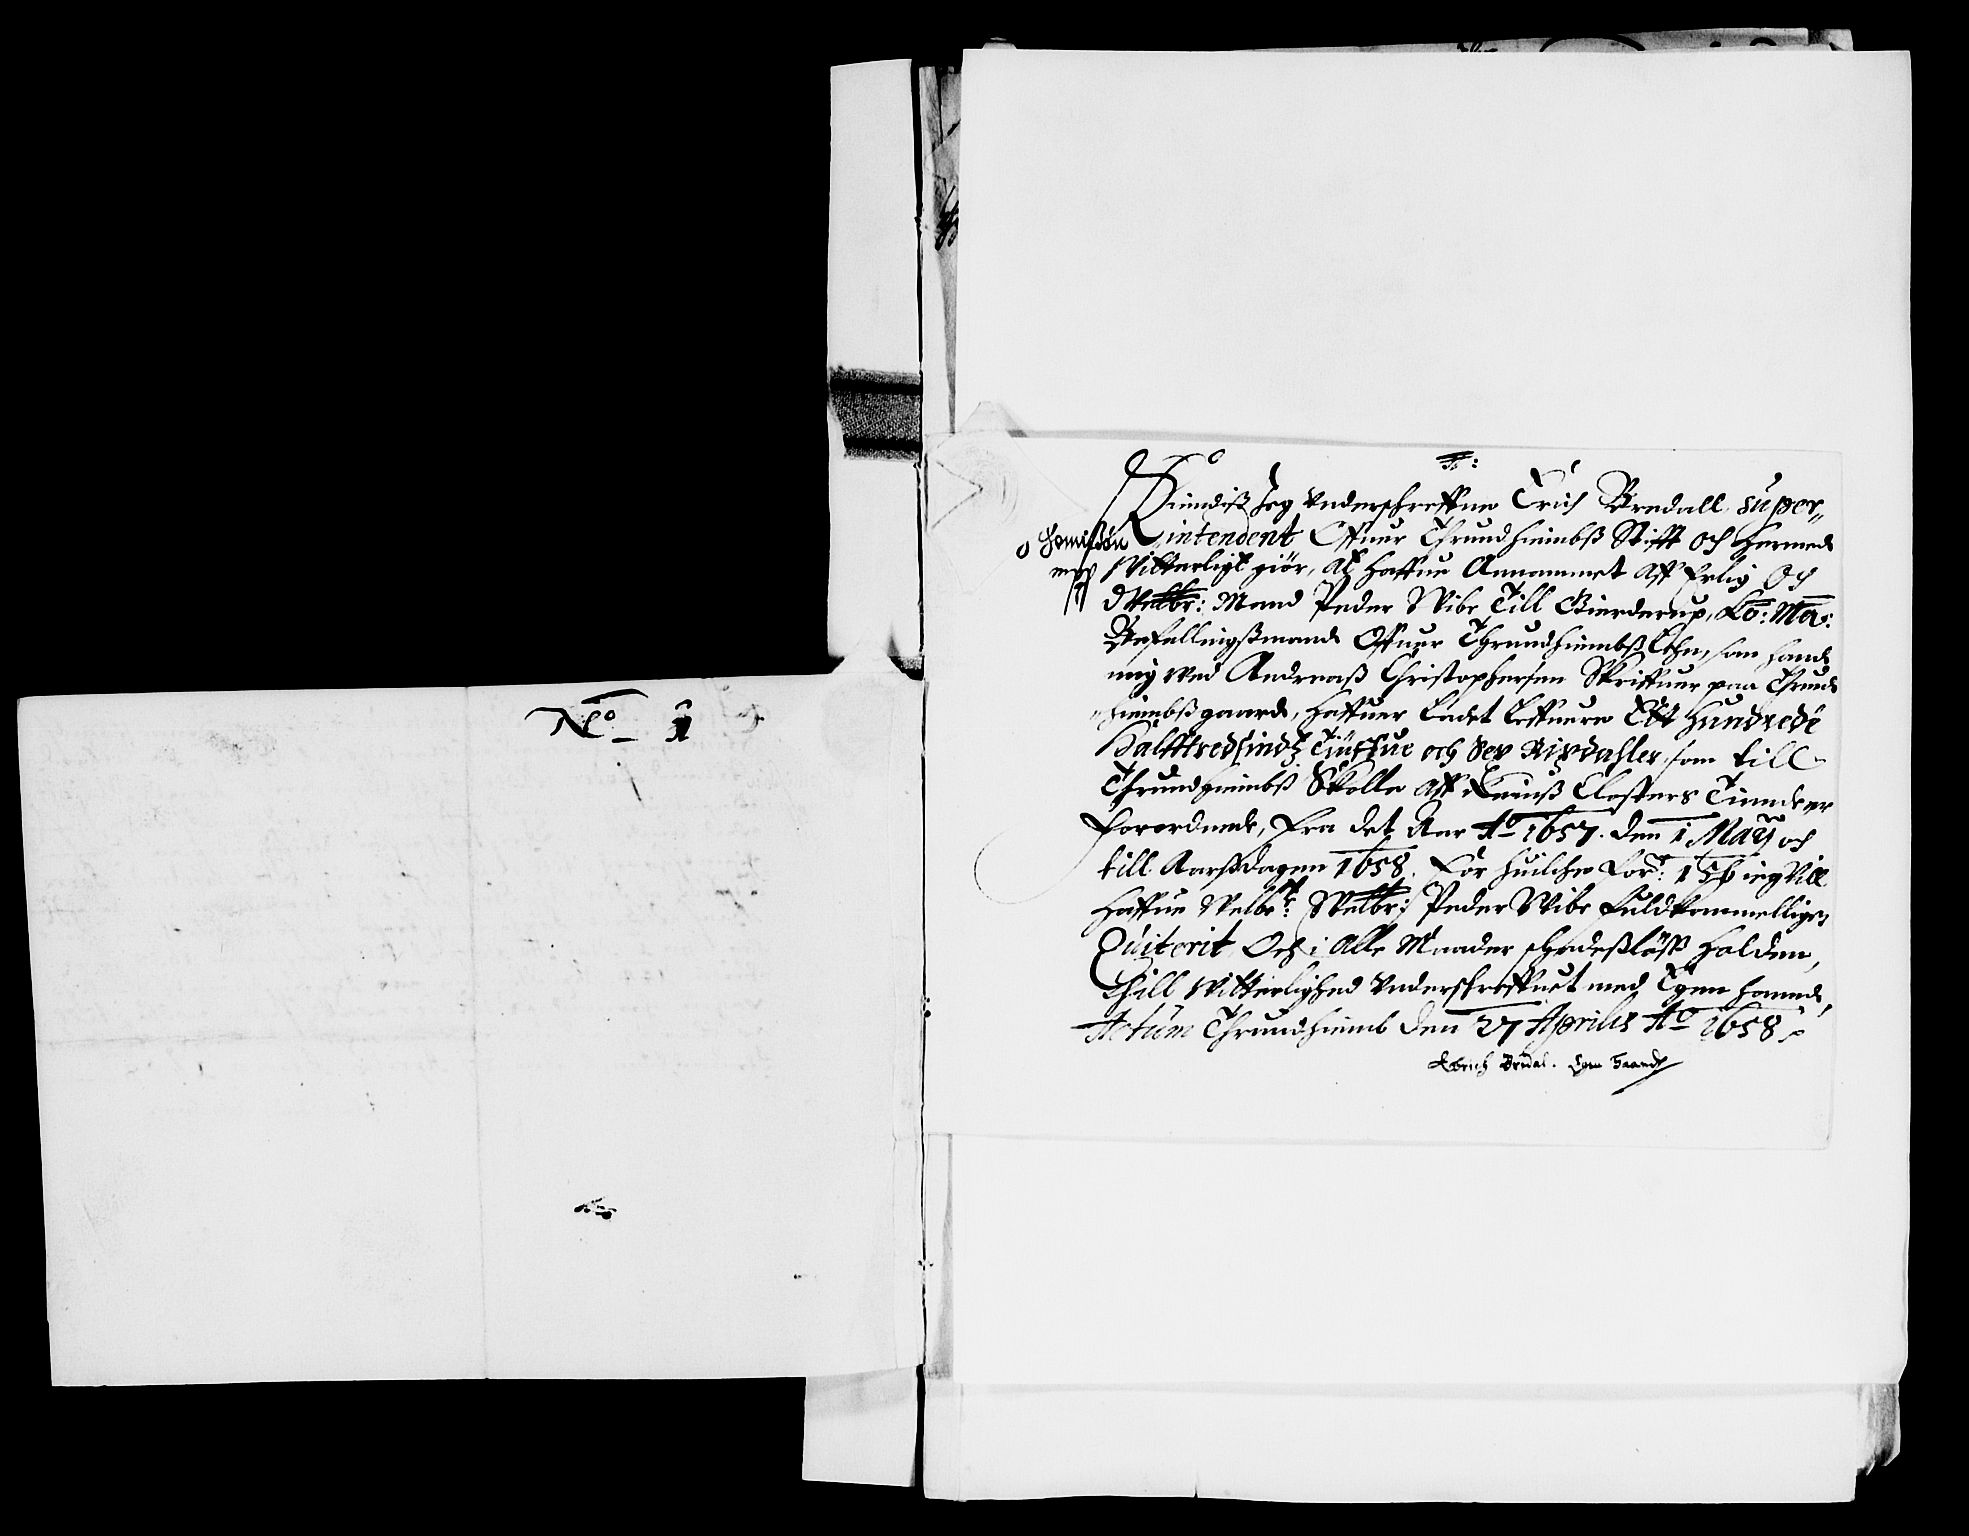 No 1
Kiendis Jeg Underschreffne Erich Bredall, super„
intendent Offuer Thrundhiembß Stifft och hermed
Witterligt giör, at haffue Annammet aff Erlig Och
Welbr: Mand Peder Wibe Till Gierderup, Ko: Ma:
Befallingßmand Offuer Thrundhiembß Lehn, som hand
mig ved Andreaß Christophersen Skriffuer paa Thrund
hiembß gaard, haffuer Ladet Leffuere Ett Hundrede
Halfftredsindtz Tiuffue och Sex Rixdahler, som till
Thrundhiembß Skolle aff Closters Tiender
forordnede, Fra det Aar Ao 1657. den 1 Maÿ och
till Aarsdagen 1658. For huilche for: ieg vill
haffue Welbete: Welbr: Peder Wibe fuldkommelligen
Quiterit Och i alle Maader schadeßlöß holden,
Thill Witterlighed Underschreffuet med Egen haand,
Actum Thrundhiemb den 27 Aprilis Ao 1658
Erich Bredal. Egen Haand